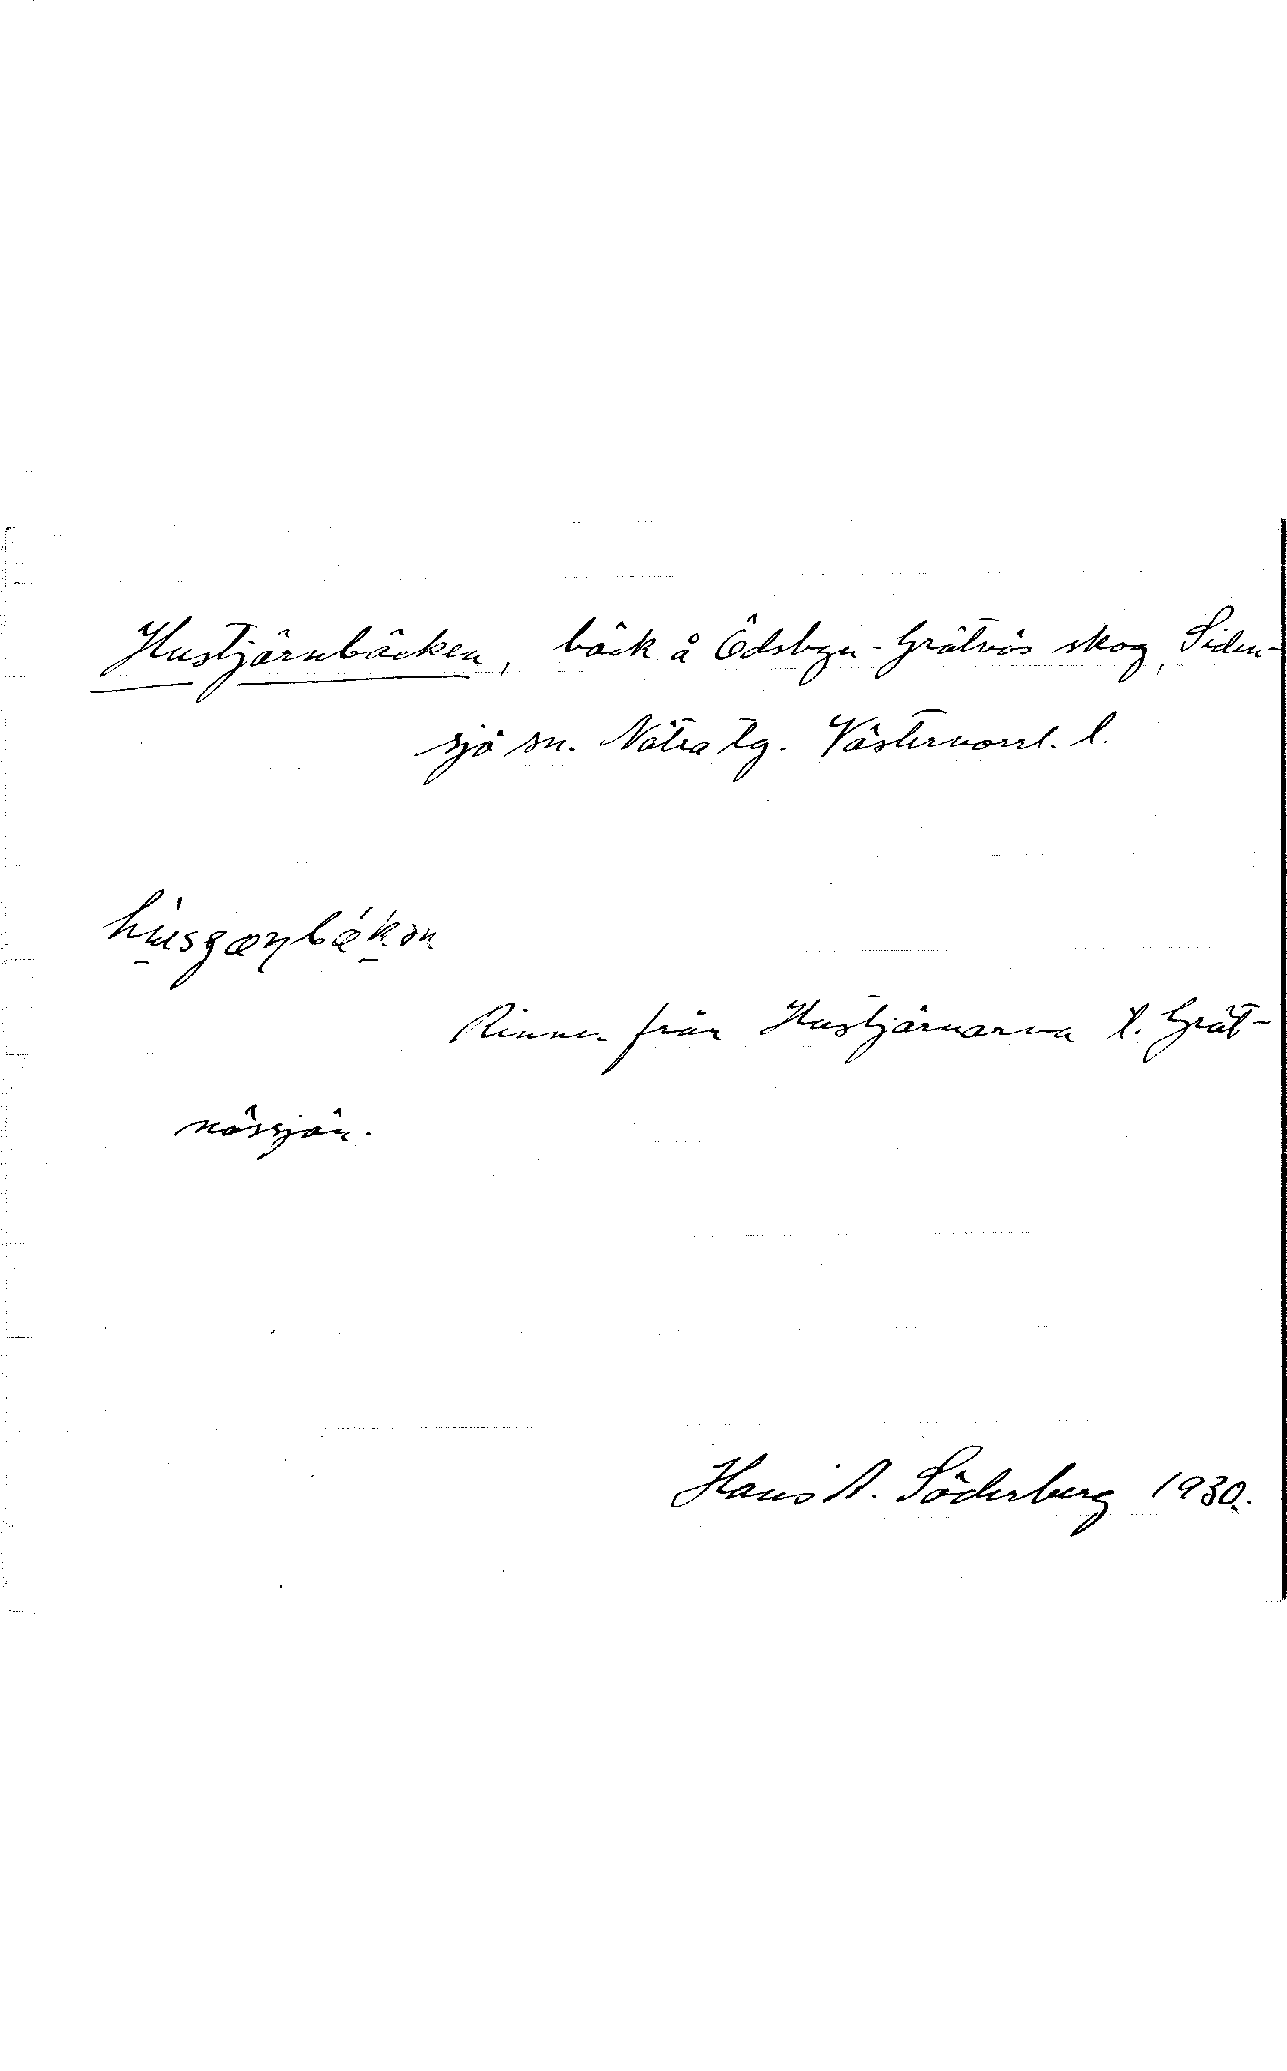 Hustjärnbäcken, bäck å Ödsbyn-Grätnäs skog, Siden-
sjö sn. Nätra tg. Västernorrl. l.
Rinner från Hustjärnarna t. Grät-
nässjön.
Hans A. Söderberg 1930.